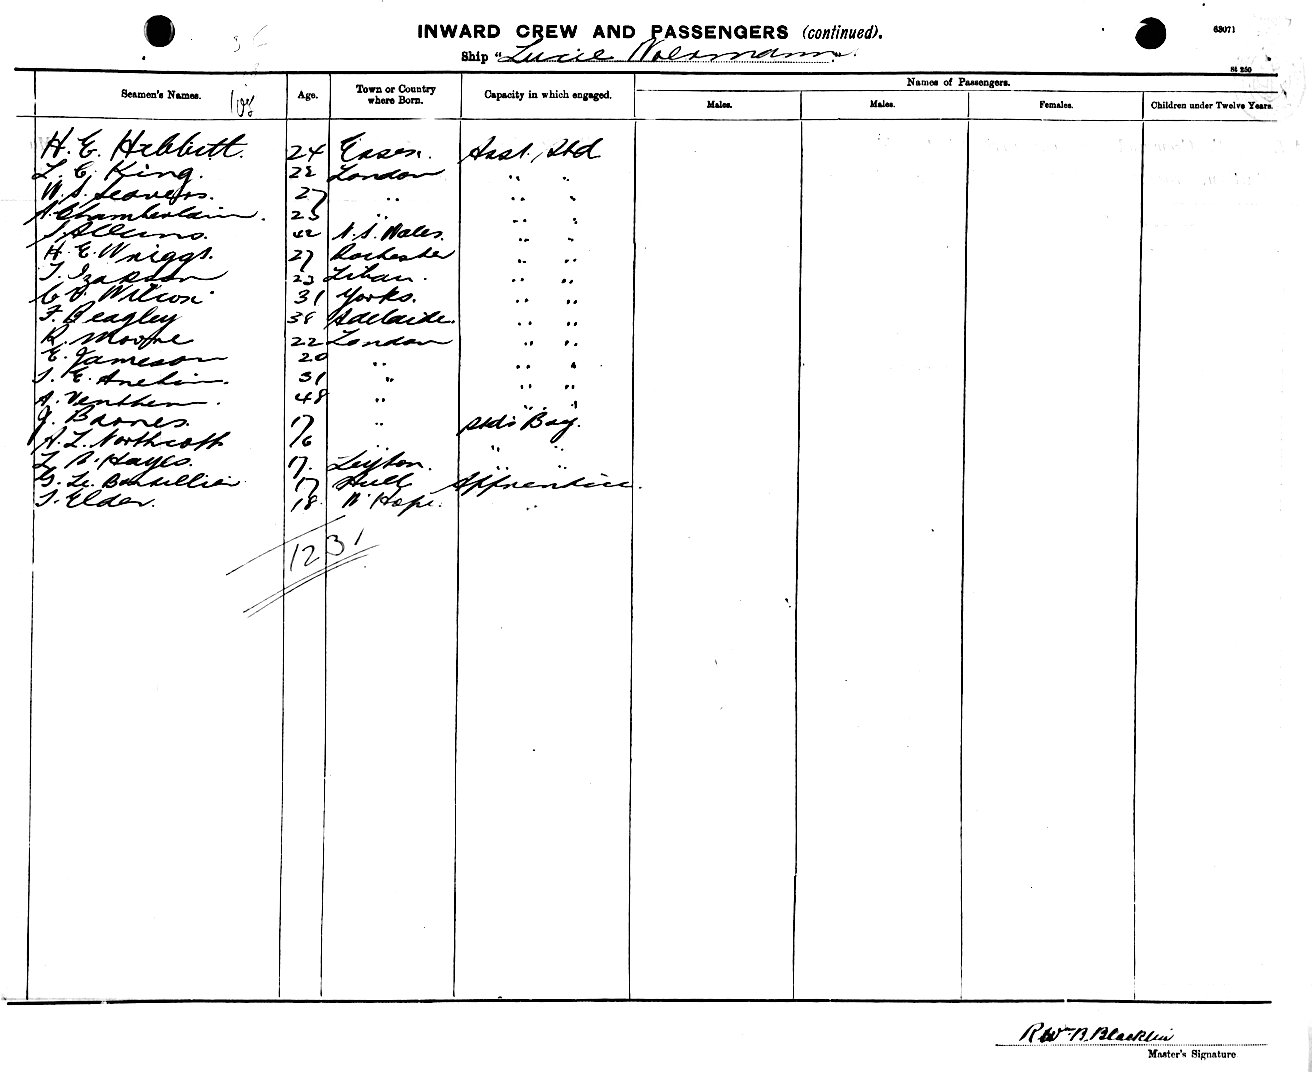 63071
INWARD CREW AND PASSENGERS (continued).
Ship "Lucie Woermann".
St 250
Seamen's Names. Age. Town or Country where Born. Capacity in which engaged. Names of Passengers.
Males. Males. Females. Children under Twelve Years.
H. E. Hibbitt. 24 Essex. Asst. Std
L. E. King. 22 London " "
W. S. Seavers. 27 " " "
A. Chamberlain. 25 " " "
42 N. S. Wales. " "
H. E. Wriggs. 27 Rochester " "
23 " "
Wilson 31 Yorks. " "
F. Beagley 38 Adelaide. " "
R. Moore 22 London " "
E. Jameson 20 " " "
31 " " "
A. Venthem. 48 " " "
J. Barnes. 17 " Stds Boy.
A. L. Northcott 16 " " "
L. B. Hayes. 17. Leyton. " "
G. Le 17 Hull Apprentice.
T. Elder. 18. N. Hope. "
1231
B. Blacklin
Master's Signature